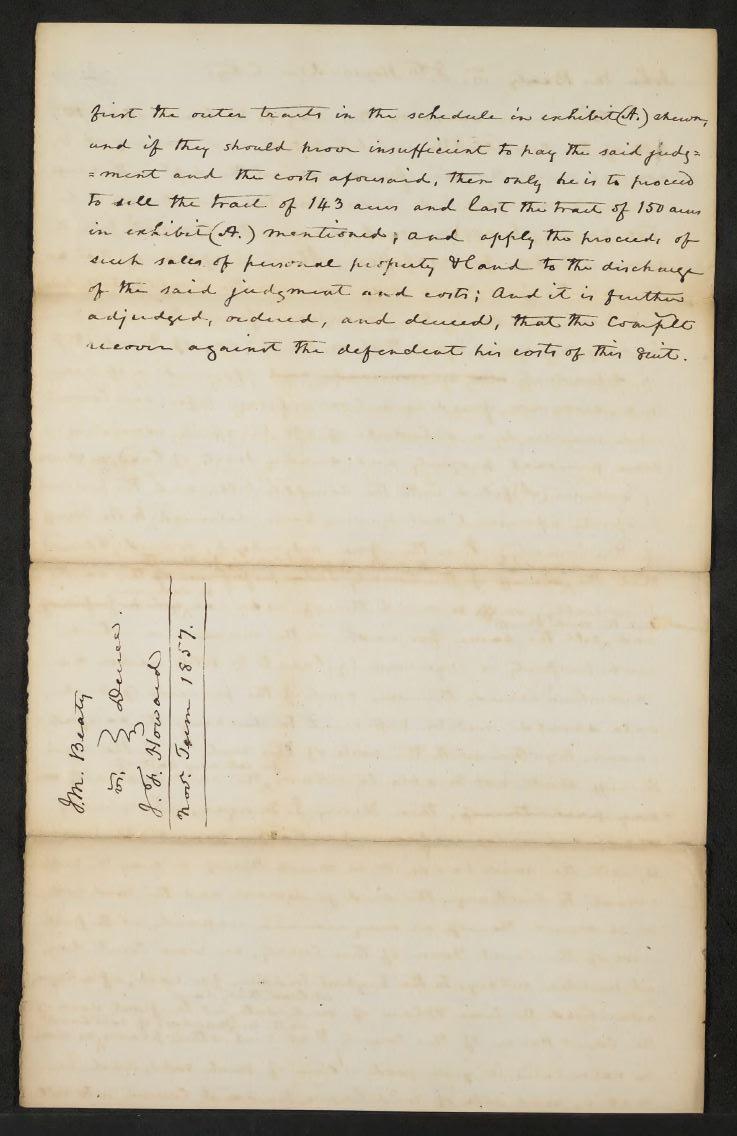 first the outer tracts in the schedule in exhibit (A.) shewn,
and if they should prove insufficient to pay the said judg=
=ment and the costs aforesaid, then only he is to proceed
to sell the tract of 143 acres and last the tract of 150 acres
in exhibit (A.) mentioned; and apply the proceeds of
such sales of personal property & land to the discharge
of the said judgment and costs; And it is further
adjudged, ordered, and decreed, that the Complt
recover against the defendent his costs of this suit.
J. M. Beaty
vs. } Decree.
J. F. Howard
Nov. Term 1857.